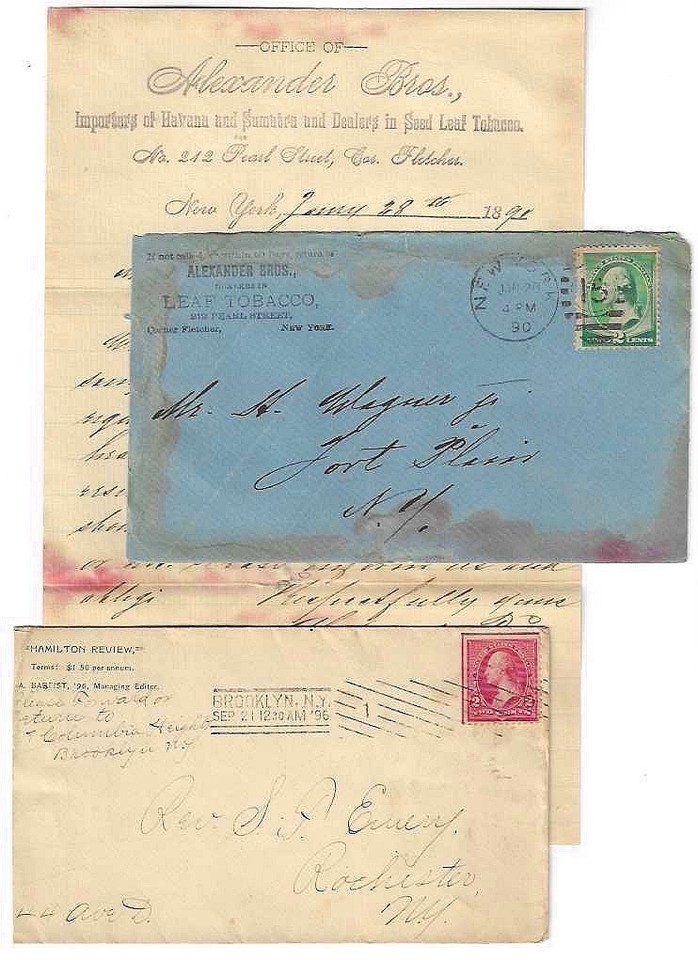 —OFFICE OF—
Alexander Bros.,
Importers of Havana and Sumatra and Dealers in Seed Leaf Tobacco.
No. 212 Pearl Street, Cor. Fletcher.
New York, Jany 28th 1890
If not called for within 10 Days, return to
ALEXANDER BROS.,
DEALERS IN
LEAF TOBACCO,
212 PEARL STREET,
Corner Fletcher, New York.
NEW YORK
JAN 28
4 PM
90
2 CENTS
Mr. H. Wagner Jr.
Fort Plain
N.Y.
or not please inform us and
oblige Respectfully yours
"HAMILTON REVIEW,"
Terms: $1 50 per annum.
A. BASTIST, '96, Managing Editor.
Please forward or
return to
Columbia Heights
Brooklyn NY
BROOKLYN, N.Y.
SEP 21 12 30 AM '96
1
2 2
TWO CENTS
Rev. S. P. Emery.
Rochester,
N.Y.
44 Ave D.